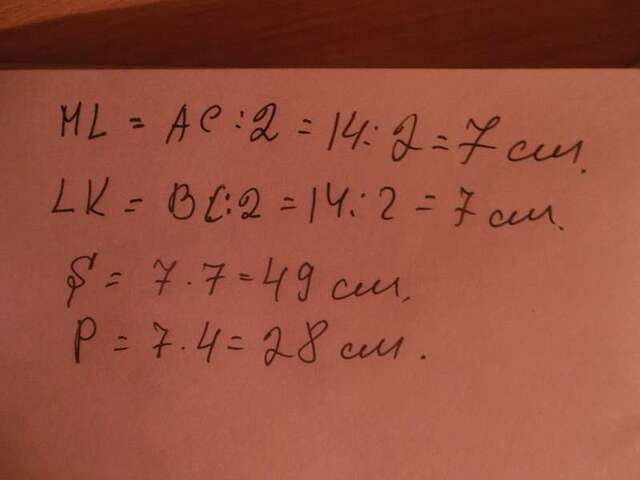 ML = AC : 2 = 14 : 2 = 7 см.
LK = BC : 2 = 14 : 2 = 7 см.
S = 7 · 7 = 49 см.
P = 7 · 4 = 28 см.